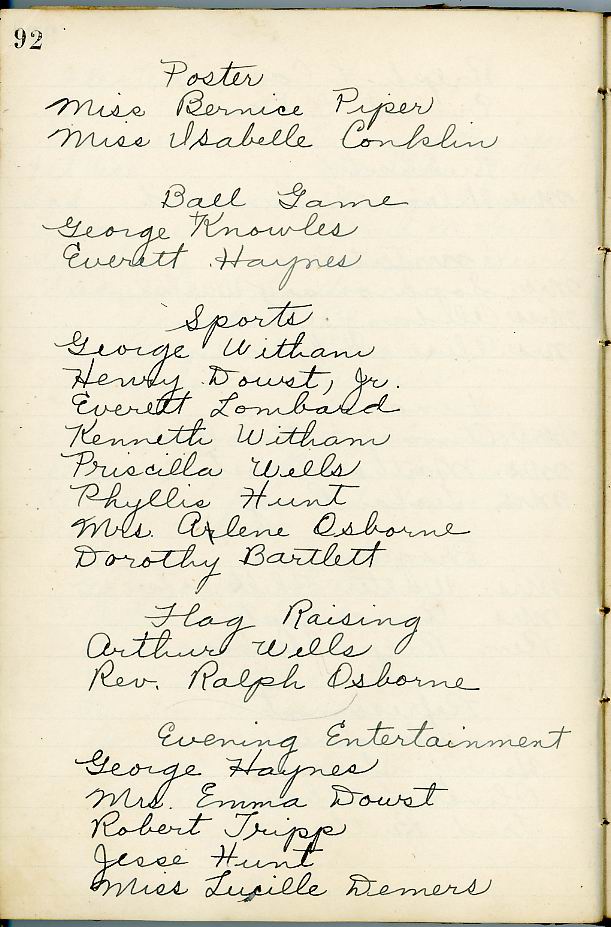 92
Poster
Miss Bernice Piper
Miss Isabelle Conklin
Ball Game
George Knowles
Everett Haynes
Sports
George Witham
Henry Dowst, Jr.
Everett Lombard
Kenneth Witham
Priscilla Wells
Phyllis Hunt
Mrs. Arlene Osborne
Dorothy Bartlett
Flag Raising
Arthur Wells
Rev. Ralph Osborne
Evening Entertainment
George Haynes
Mrs. Emma Dowst
Robert Tripp
Jesse Hunt
Miss Lucille Demers